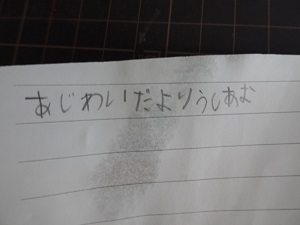 あじわいだよりうしあむ